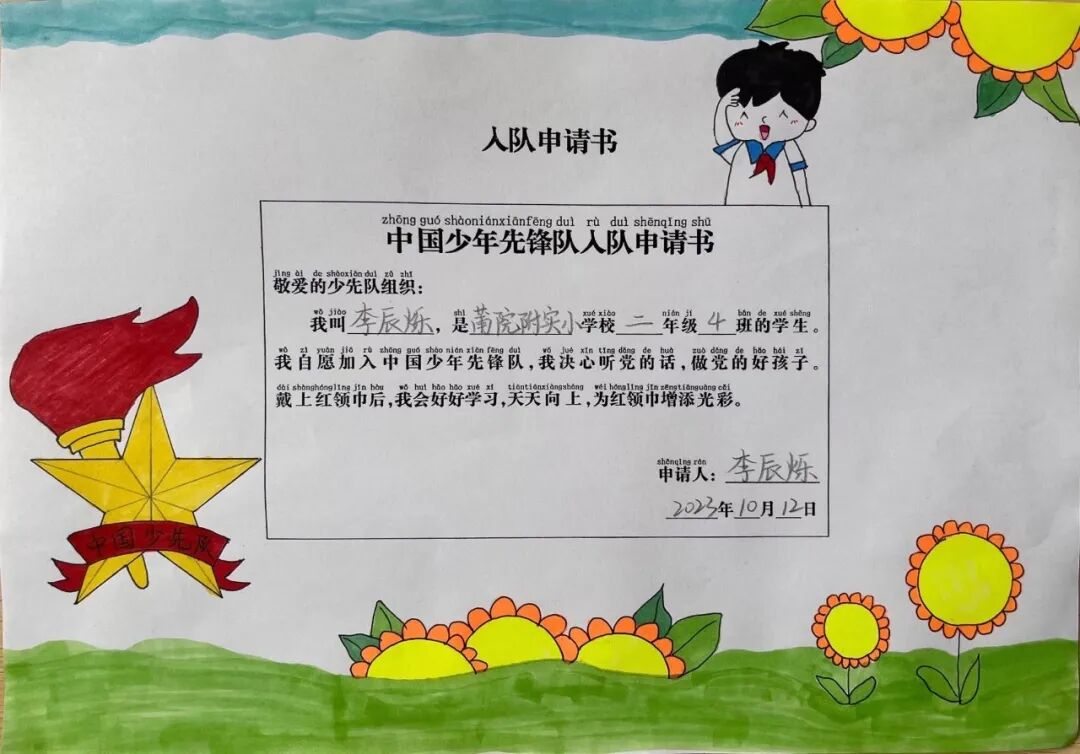 入队申请书
zhōng guó shàoniánxiānfēng duì rù duì shēnqǐng shū
中国少年先锋队入队申请书
jìng ài de shàoxiān duì zǔ zhī
敬爱的少先队组织：
wǒ jiào shì xué xiào nián jí bān de xué shēng
我叫李辰烁，是莆院附实小学校二年级4班的学生。
wǒ zì yuàn jiā rù zhōng guó shào nián xiān fēng duì wǒ jué xīn tīng dǎng de huà zuò dǎng de hǎo hái zi
我自愿加入中国少年先锋队，我决心听党的话，做党的好孩子。
dài shànghónglǐng jīn hòu wǒ huì hǎo hǎo xué xí tiāntiānxiàngshàng wèi hónglǐng jīn zēngtiānguāng cǎi
戴上红领巾后，我会好好学习，天天向上，为红领巾增添光彩。
shēnqǐng rén
申请人：李辰烁
2023年10月12日
中国少先队